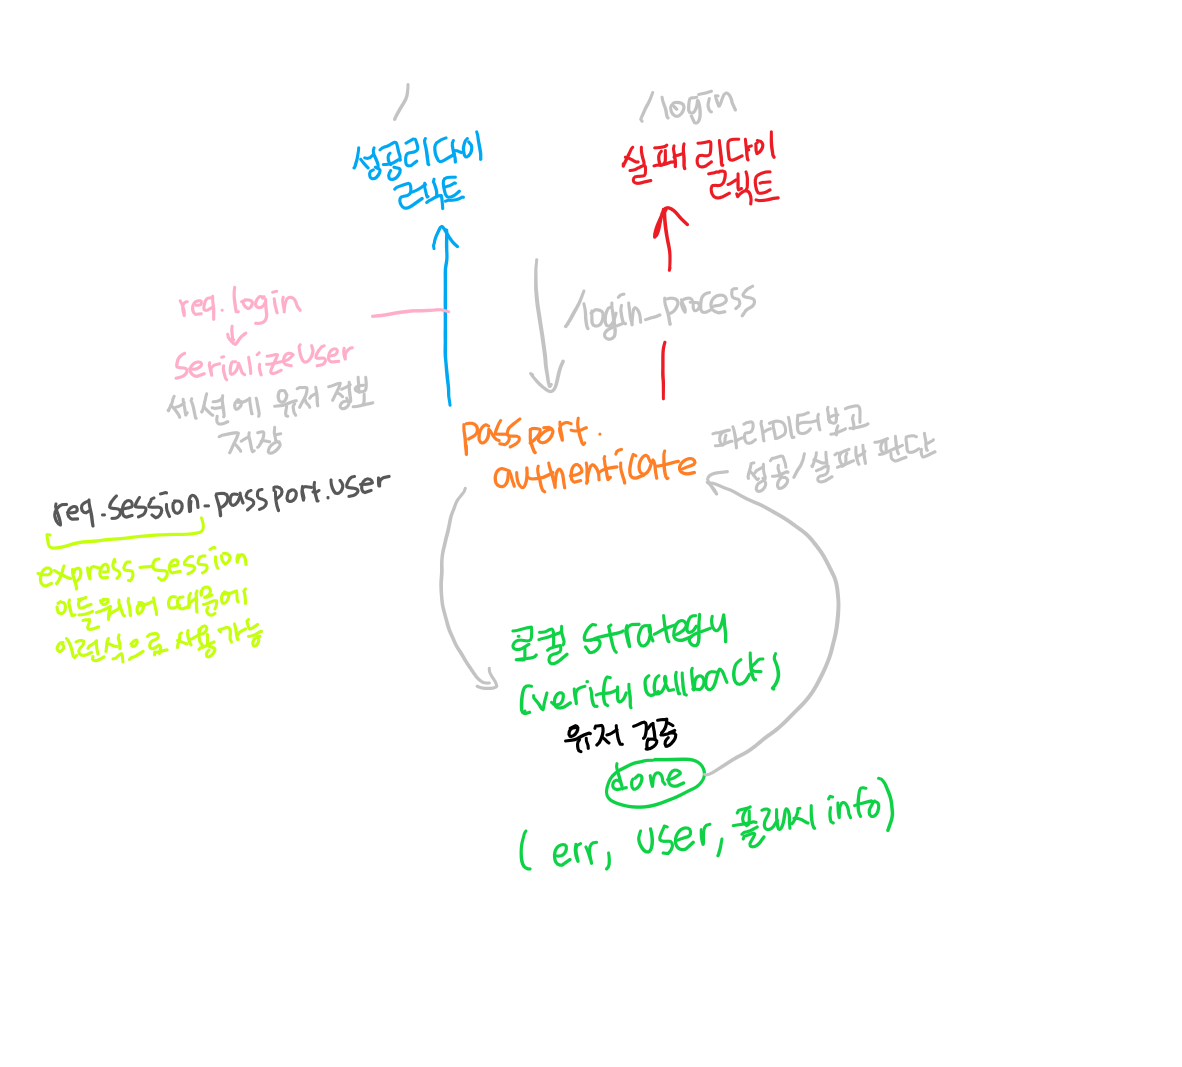 /
성공리다이
렉트
/login
실패 리다이
렉트
req.login
serializeUser
세션에 유저 정보
저장
/login_process
passport.
authenticate
파라미터보고
성공/실패 판단
req.session.passport.user
express-session
미들웨어 때문에
이런식으로 사용가능
로컬 strategy
(verify callback)
유저 검증
done
( err, user, 플래시 info)